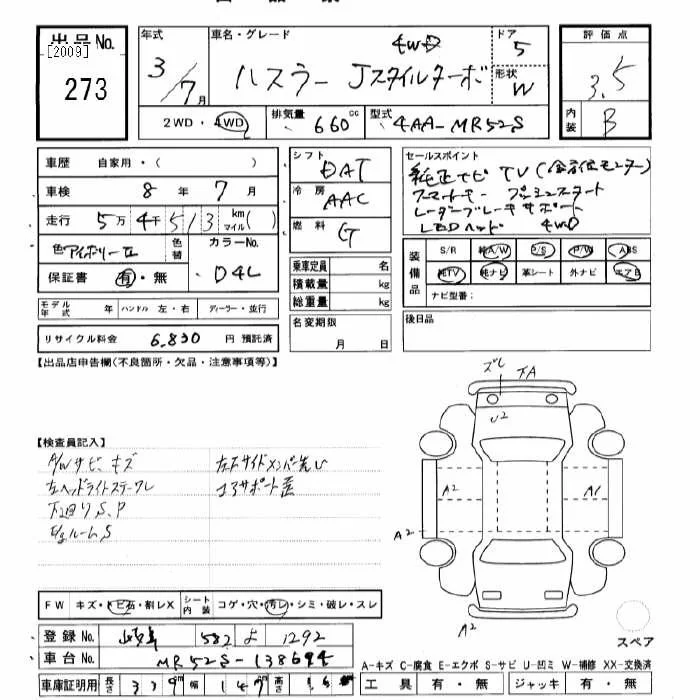 出品No.
[2009]
273
年式
3/7月
車名・グレード
4WD
ハスラー Jスタイルターボ
ドア
5
形状
W
評価点
3.5
内装
B
2WD・4WD
排気量 660cc
型式 4AA-MR52S
車歴 自家用・( )
車検 8年7月
走行 5万4千513km マイル( )
色 アイボリーII
色替
カラーNo. D4L
保証書 有・無
モデル年式 年 ハンドル 左・右 ディーラー・並行
リサイクル料金 6,830円 預託済
シフト DAT
冷房 AAC
燃料 G
乗車定員 名
積載量 kg
総重量 kg
名変期限
月 日
セールスポイント
純正ナビ TV(全方位モニター)
スマートキー プッシュスタート
レーダーブレーキサポート
LEDヘッド 4WD
装備品
S/R 純A/W P/S P/W ABS
純TV 純ナビ 革シート 外ナビ エアB
ナビ型番:
後日品
【出品店申告欄(不良箇所・欠品・注意事項等)】
ズレ
下A
U2
A2
A1
A2
A2
スペア
【検査員記入】
A/Wサビ、キズ
左ヘッドライトステーワレ
下廻りS、P
S
コアサポート歪
FW キズ・トビ石・割レX
シート内装 コゲ・穴・汚レ・シミ・破レ・スレ
登録No. 岐阜 582 よ 1292
車台No. MR52S-138694
車庫証明用 長さ 339 幅 147 高さ 16
A-キズ C-腐食 E-エクボ S-サビ U-凹ミ W-補修 XX-交換済
工具 有・無 ジャッキ 有・無